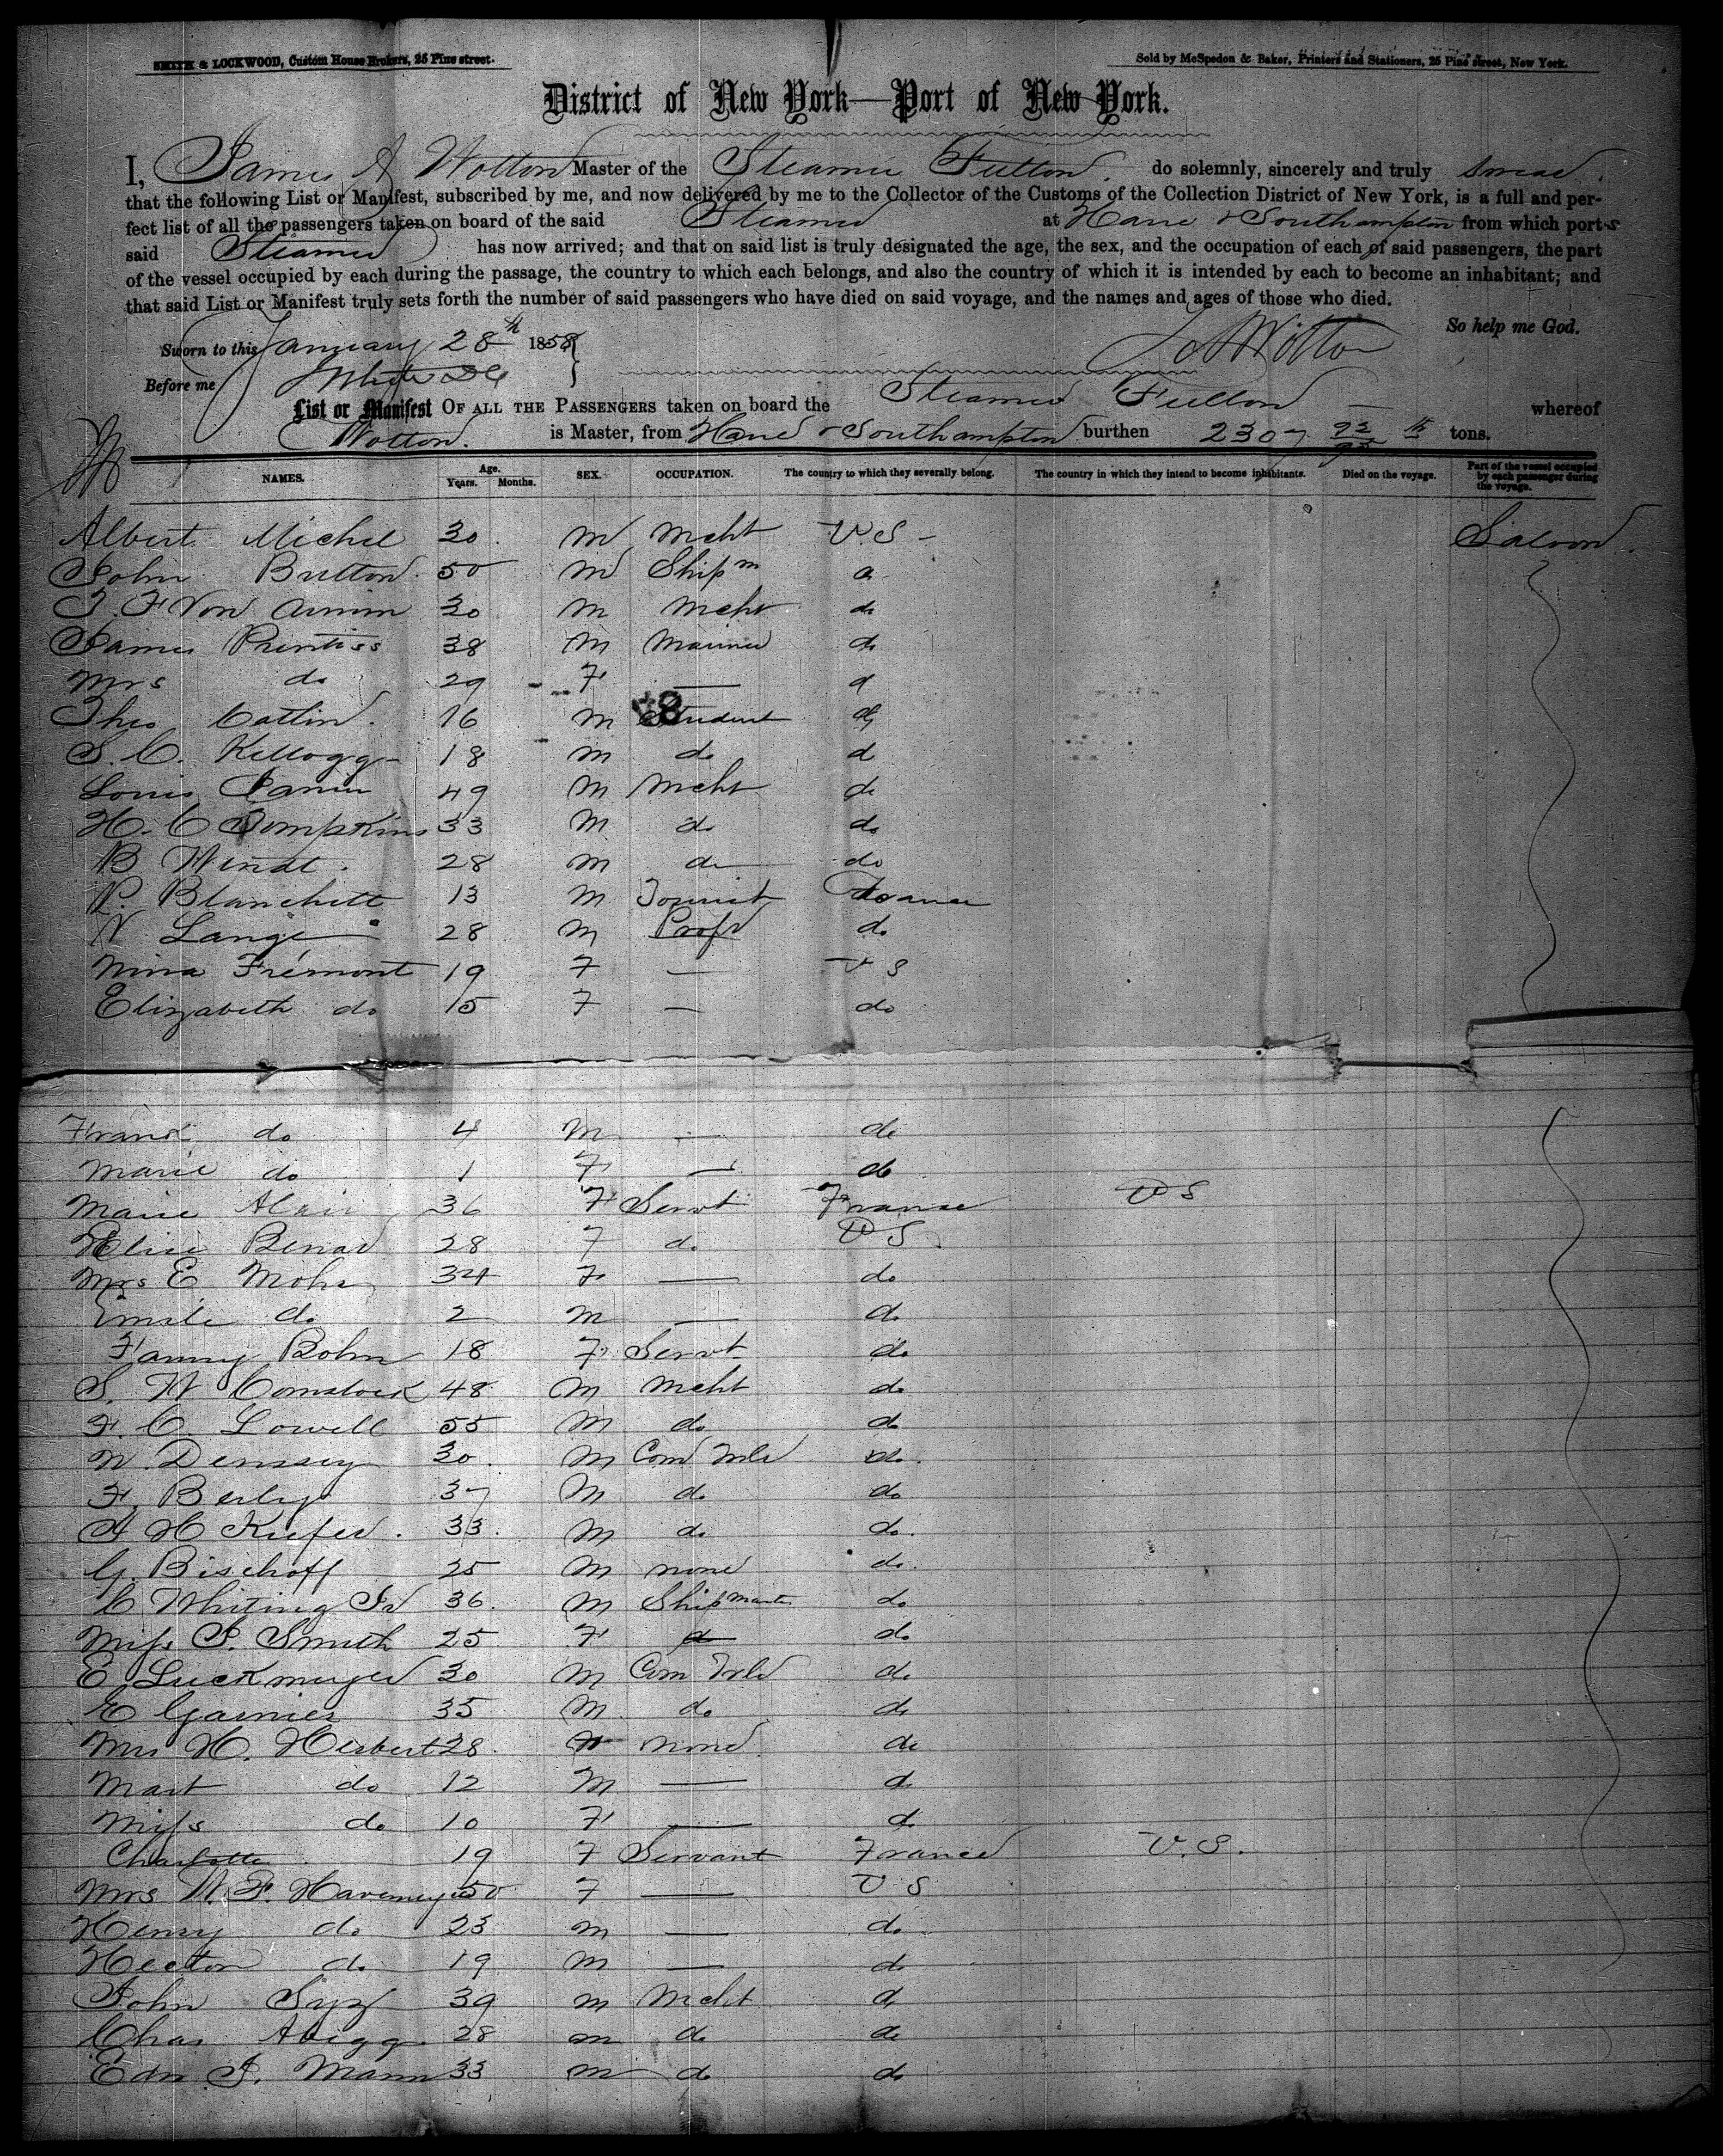 SMITH & LOCKWOOD, Custom House Brokers, 25 Pine street.
Sold by McSpedon & Baker, Printers and Stationers, 25 Pine street, New York.
District of New York—Port of New York.
I, James A Wotton Master of the Steamer Fulton. do solemnly, sincerely and truly swear
that the following List or Manifest, subscribed by me, and now delivered by me to the Collector of the Customs of the Collection District of New York, is a full and per-
fect list of all the passengers taken on board of the said Steamer at Havre & Southampton from which ports
said Steamer has now arrived; and that on said list is truly designated the age, the sex, and the occupation of each of said passengers, the part
of the vessel occupied by each during the passage, the country to which each belongs, and also the country of which it is intended by each to become an inhabitant; and
that said List or Manifest truly sets forth the number of said passengers who have died on said voyage, and the names and ages of those who died.
So help me God.
Sworn to this January 28th 1858 JAWotton
Before me
List or Manifest OF ALL THE PASSENGERS taken on board the Steamer Fulton — whereof
Wotton. is Master, from Havre & Southampton burthen 2307 93/95 th tons.
NAMES. Age. Years. Months. SEX. OCCUPATION. The country to which they severally belong. The country in which they intend to become inhabitants. Died on the voyage. Part of the vessel occupied by each passenger during the voyage.
Albert Michel 30 M Mcht U S - Saloon.
John Britton 50 M Ship m do
J. F Von Arnim 30 M Mcht do
James Prentiss 38 M Mariner do
Mrs do 29 F — do
Theo Catlin 16 M Student do
S. C. Kellogg 18 M do do
Louis Janin 49 M Mcht do
H. C Tompkins 33 M do do
B Wendt. 28 M do do
P. Blanchett 13 M Tourist France
V Lange 28 M Profr do
Nina Fremont 19 F — U S
Elizabeth do 15 F — do
Frank do 4 M — do
Marie do 1 F — do
Marie Alair 36 F Servt France U S
Elise Benar 28 F do U S
Mrs E Mohr 34 F — do
Emile do 2 M — do
Fanny Bohn 18 F Servt do
S. W Comstock 48 M Mcht do
F. C. Lowell 55 M do do
W. Denssey 30 M Com Trlr do
F. Berly 37 M do do
A H Kiefer. 33 M do do
G. Bischoff 25 M none do
C Whiting Jr 36 M Ship Mastr do
Miss P. Smith 25 F do do
E Luckmeyer 30 M Com Trlr do
E Garnier 35 M do do
Mrs H. Herbert 28 none do
Mast do 12 M — do
Miss do 10 F — do
Charlotte 19 F Servant France U.S.
Mrs W. F. Havemeyer 50 F — U S
Henry do 23 M — do
Hector do 19 M — do
John Syz 39 M Mcht do
Chas Abegg 28 M do do
Edw J. Mann 33 M do do